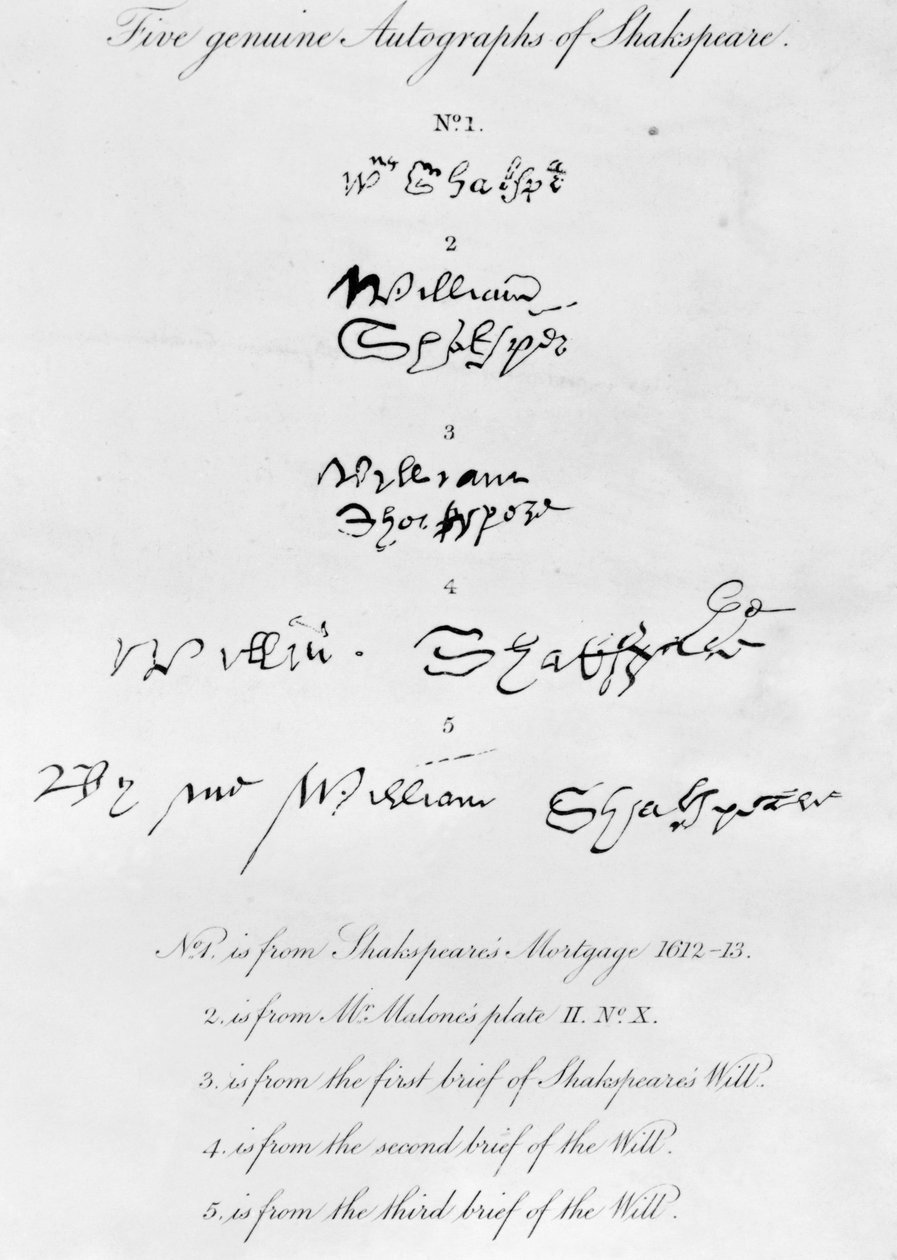 Five genuine Autographs of Shakspeare.
No. 1.
Wm Shakspe
2
William
Shakspēr
3
William
Shakspere
4
Willm Shakspere
5
By me William Shakspeare
No. 1. is from Shakspeare's Mortgage 1612-13.
2. is from Mr. Malone's plate II. No. X.
3. is from the first brief of Shakspeare's Will.
4. is from the second brief of the Will.
5. is from the third brief of the Will.